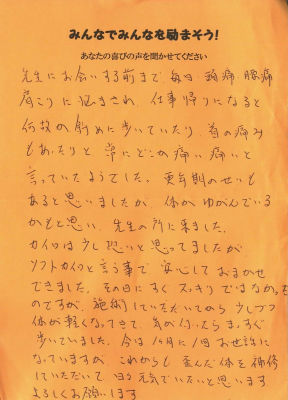 みんなでみんなを励まそう!
あなたの喜びの声を聞かせてください
先生にお会いする前まで毎日頭痛腰痛
肩こりに悩まされ、仕事帰りになると
何故か斜めに歩いていたり、首の痛み
もあったりと常にどこか痛い痛いと
言っていたようでした。更年期のせいも
あると思いましたが、体がゆがんでいる
かもと思い、先生の所に来ました。
カイロは少し恐いと思ってましたが
ソフトカイロと言う事で安心しておまかせ
できました。その日にすぐスッキリではなかった
のですが、施術していただいてから少しづつ
体が軽くなってきて、気の付いたらまっすぐ
歩いていました。今は1ヶ月に1回お世話に
なっていますが、これからも歪んだ体を補修
していただいて日々元気でいたいと思います
よろしくお願いします